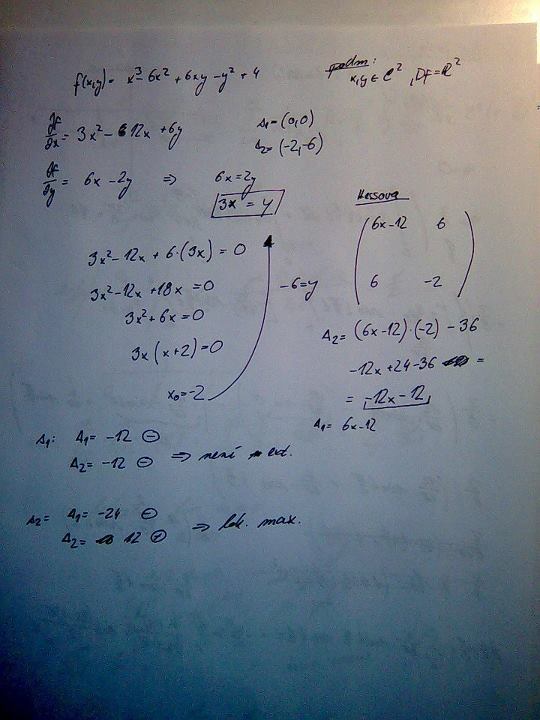 f(x,y) = x³ - 6x² + 6xy - y² + 4
podm:
x,y ∈ C², Df = R²
∂f/∂x = 3x² - 12x + 6y
A₁ = (0,0)
A₂ = (-2,-6)
∂f/∂y = 6x - 2y ⇒ 6x = 2y
3x = y
Hessova
6x-12 6
6 -2
3x² - 12x + 6·(3x) = 0
-6 = y
3x² - 12x + 18x = 0
3x² + 6x = 0
3x(x+2) = 0
x₀ = -2
Δ₂ = (6x-12)·(-2) - 36
-12x + 24 - 36 =
= -12x - 12
Δ₁ = 6x-12
A₁: Δ₁ = -12 ⊖
Δ₂ = -12 ⊖ ⇒ není ext.
A₂: Δ₁ = -24 ⊖
Δ₂ = 12 ⊕ ⇒ lok. max.